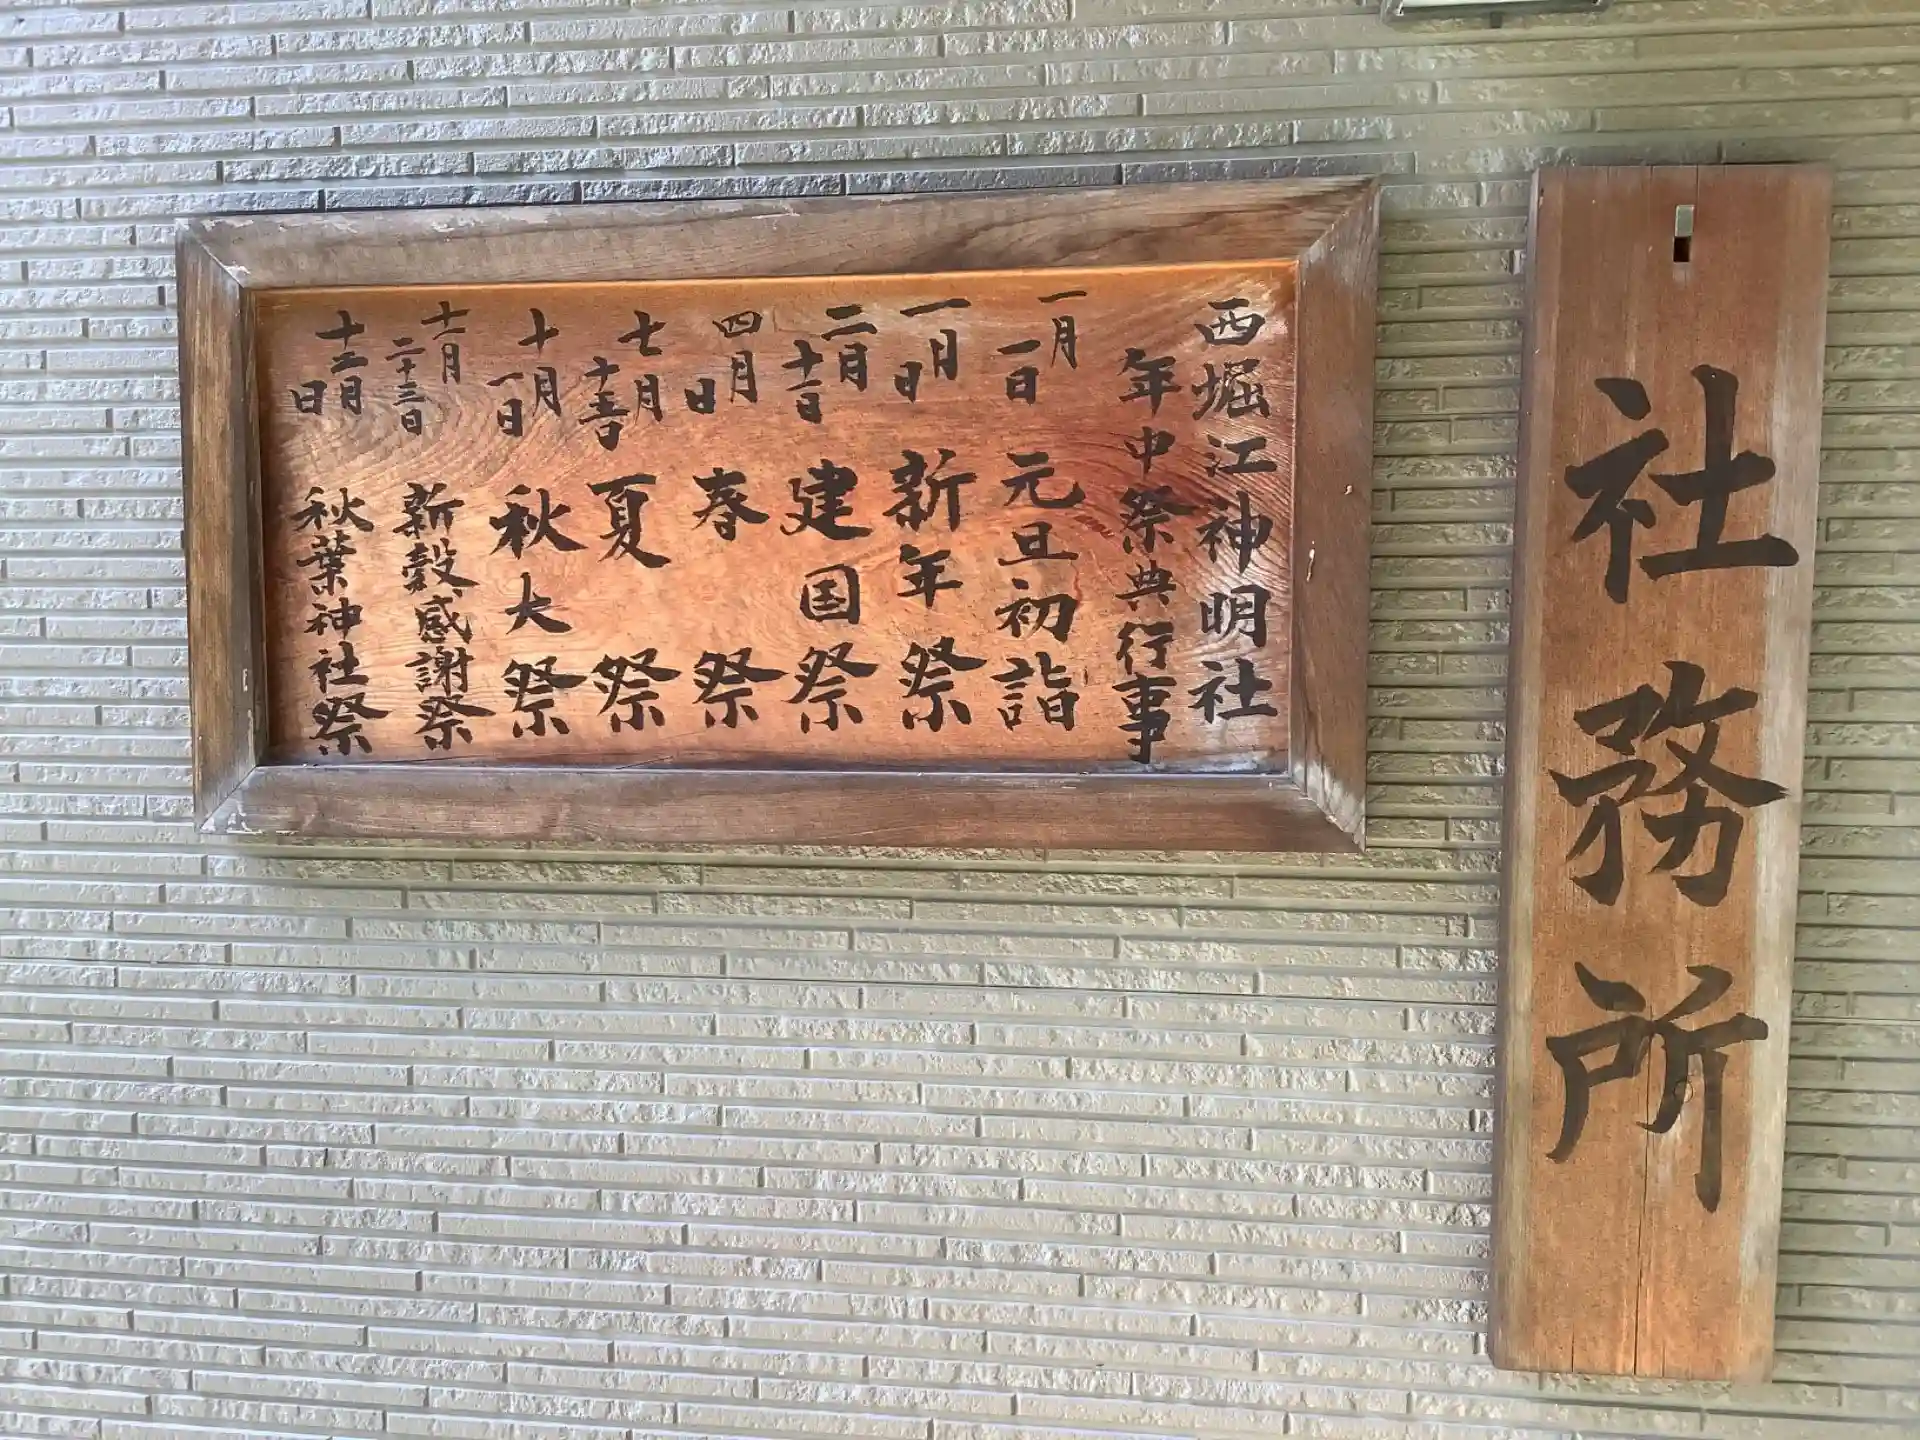 社務所
西堀江神明社
年中祭典行事
一月一日 元旦初詣
一月 日 新年祭
二月十一日 建国祭
四月 日 春祭
七月十五日 夏祭
十月一日 秋大祭
十一月二十三日 新穀感謝祭
十二月 日 秋葉神社祭